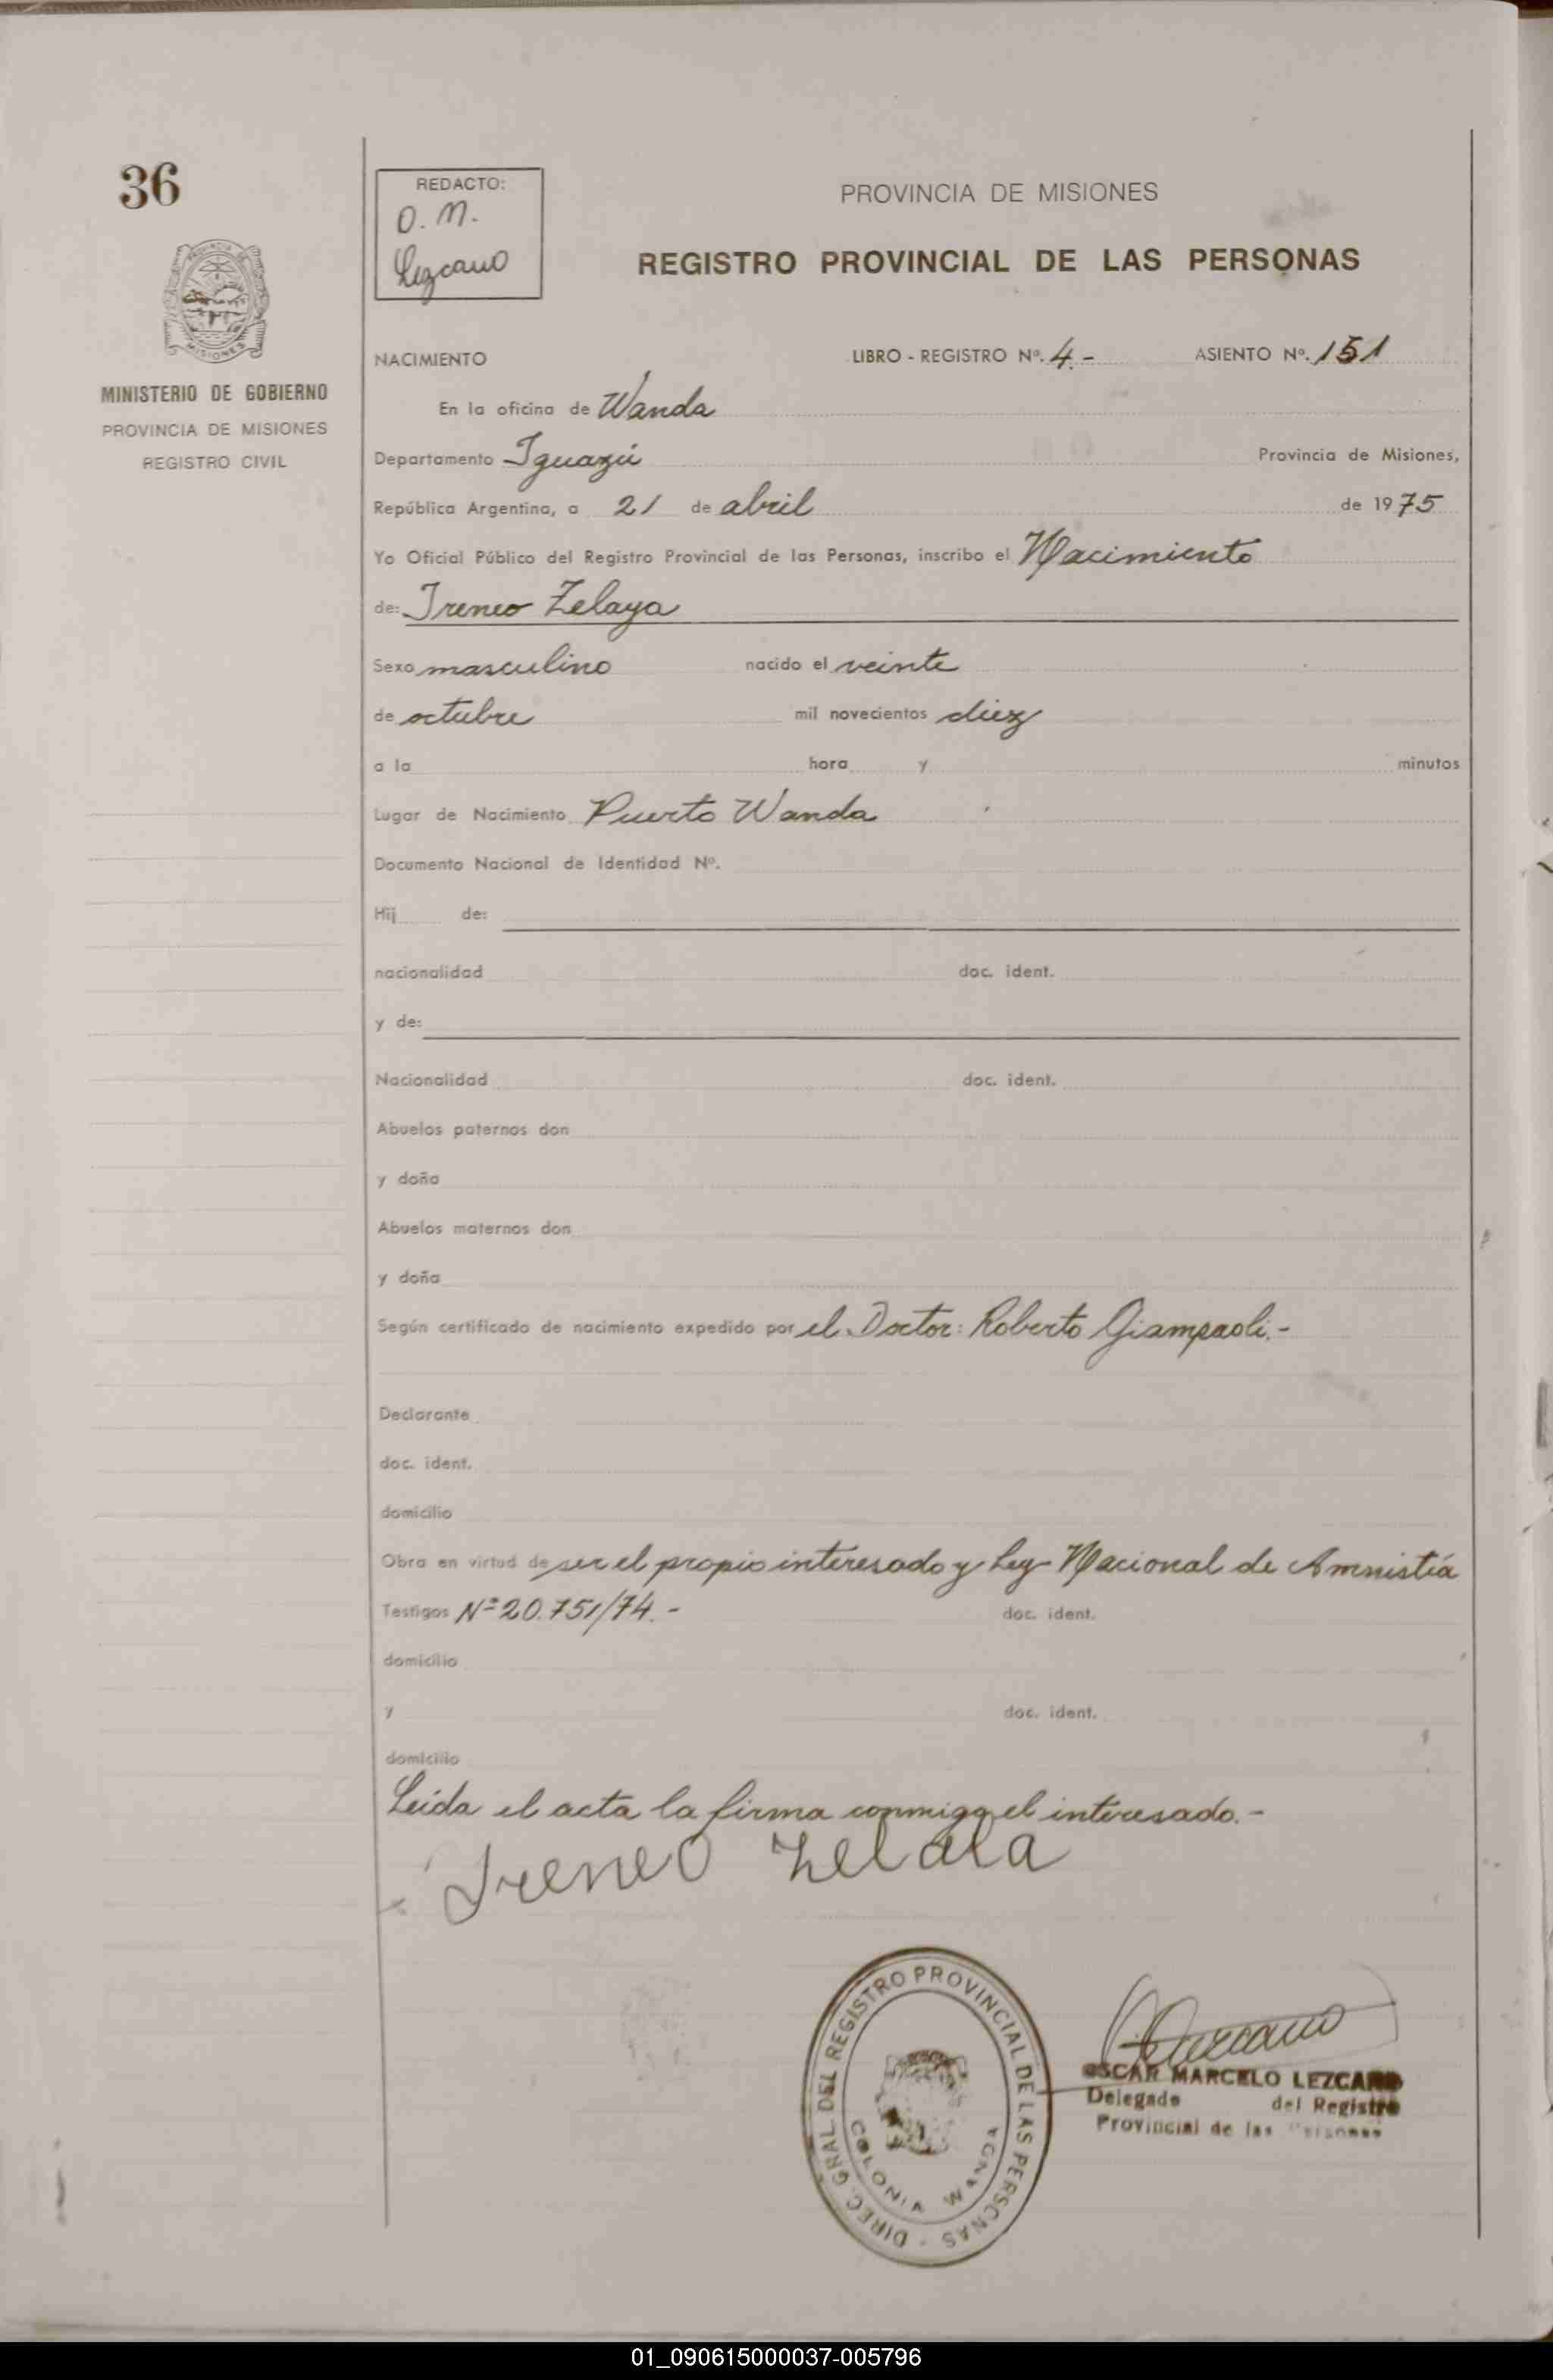 36
REDACTO:
O. M.
Lezcano
PROVINCIA DE MISIONES
REGISTRO PROVINCIAL DE LAS PERSONAS
MISIONES
MINISTERIO DE GOBIERNO
PROVINCIA DE MISIONES
REGISTRO CIVIL
NACIMIENTO LIBRO - REGISTRO Nº. 4.- ASIENTO Nº. 151
En la oficina de Wanda
Departamento Iguazú Provincia de Misiones,
República Argentina, a 21 de abril de 1975
Yo Oficial Público del Registro Provincial de las Personas, inscribo el Nacimiento
de: Ireneo Zelaya
Sexo masculino nacido el veinte
de octubre mil novecientos diez
a la hora y minutos
Lugar de Nacimiento Puerto Wanda
Documento Nacional de Identidad Nº.
Hij de:
nacionalidad doc. ident.
y de:
Nacionalidad doc. ident.
Abuelos paternos don
y doña
Abuelos maternos don
y doña
Según certificado de nacimiento expedido por el Doctor: Roberto Giampaoli.-
Declarante
doc. ident.
domicilio
Obra en virtud de ser el propio interesado y Ley Nacional de Amnistía
Testigos Nº 20.751/74.- doc. ident.
domicilio
y doc. ident.
domicilio
Leída el acta la firma conmigo el interesado.-
Ireneo Zelaia
DIREC. GRAL DEL REGISTRO PROVINCIAL DE LAS PERSONAS -
COLONIA WANDA
OSCAR MARCELO LEZCANO
Delegado del Registro
Provincial de las Personas
01_090615000037-005796